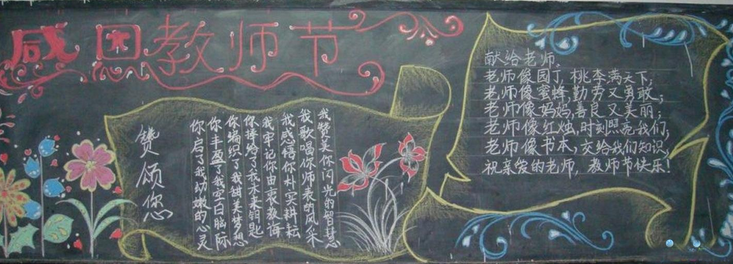 感恩教师节
赞颂您
我赞美你闪光的智慧
我歌唱你师表的风采
我感悟你朴实耕耘
我牢记你由衷教诲
你捧给了我未来钥匙
你编织了我甜美梦想
你丰盈了我空白脑际
你启了我幼嫩的心灵
献给老师
老师像园丁,桃李满天下;
老师像蜜蜂,勤劳又勇敢;
老师像妈妈,善良又美丽;
老师像红烛,时刻照亮我们;
老师像书本,交给我们知识,
祝亲爱的老师,教师节快乐!